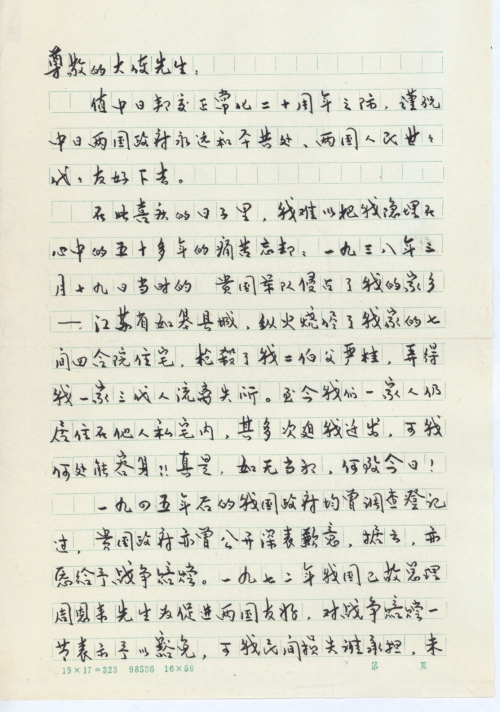 尊敬的大使先生：
值中日邦交正常化二十周年之际，谨祝
中日两国政府永远和平共处、两国人民世々
代々友好下去。
在此喜庆的日子里，我难以把我隐埋在
心中的五十多年的痛苦忘却：一九三八年三
月十九日当时的 贵国军队侵占了我的家乡
——江苏省如皋县城，纵火烧尽了我家的七
间四合院住宅，枪殺了我二伯父严桂，弄得
我一家三代人流离失所。至今我们一家人仍
居住在他人私宅内，其多次迫我迁出，可我
何处能容身!!真是，如无当初，何致今日！
一九四五年后的我国政府均曾调查登记
过，贵国政府亦曾公开深表歉意，据云，亦
愿给予战争赔偿。一九七二年我国已故总理
周恩来先生为促进两国友好，对战争赔偿一
节表示予以豁免，可我民间损失谁承担，未
19×17=323 98536 16×50 第 页